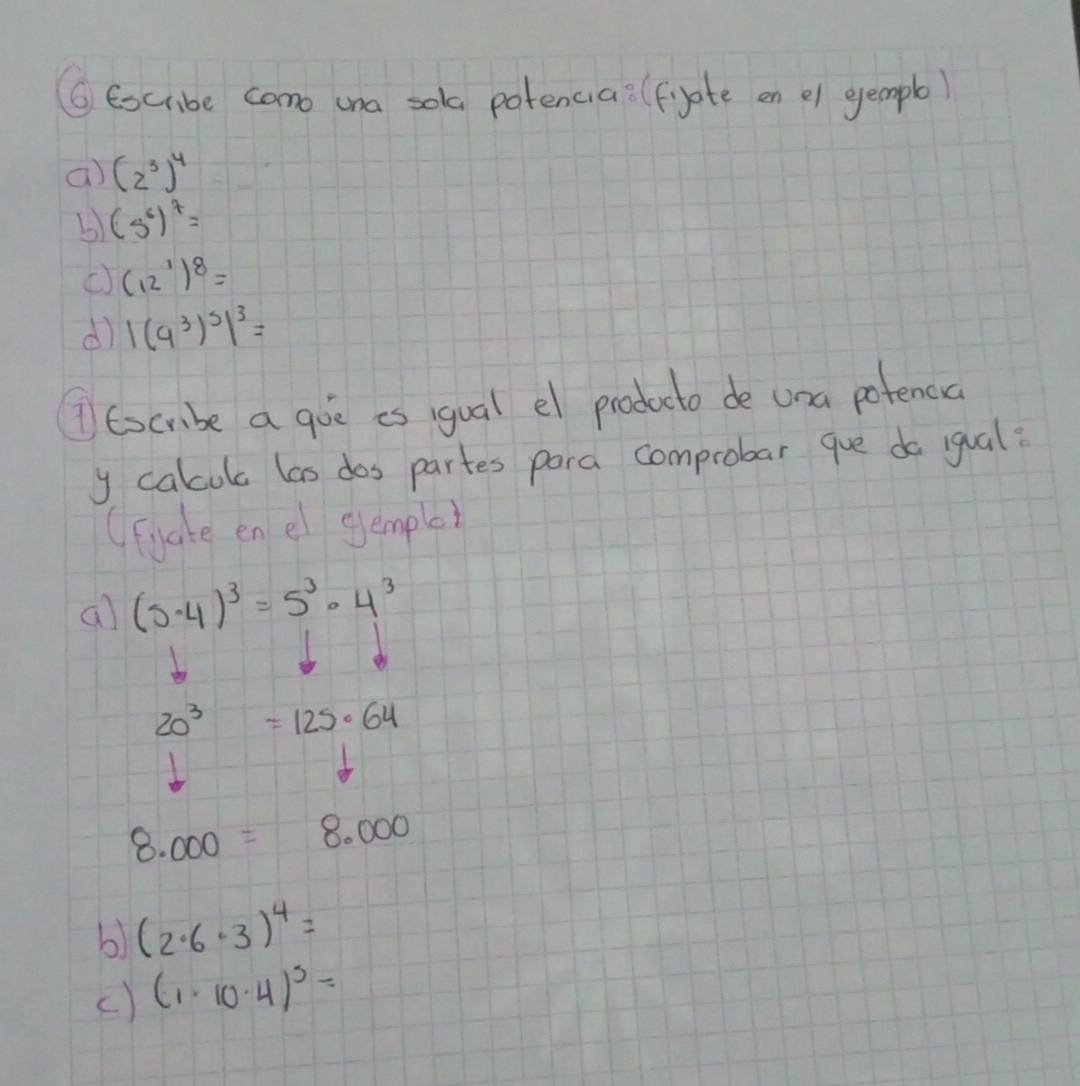 ⑥ Escribe como una sola potencia: (fijate en el ejemplo)
a) (2⁵)⁴
b) (5⁶)⁷=
c) (12¹)⁸=
d) |(9³)⁵|³=
⑦ Escribe a que es igual el producto de una potencia
y calcula las dos partes para comprobar que da igual:
(Fijate en el ejemplo)
a) (5·4)³ = 5³ · 4³
↓ ↓ ↓
20³ = 125 · 64
↓ ↓
8.000 = 8.000
b) (2·6·3)⁴ =
c) (1·10·4)⁵ =